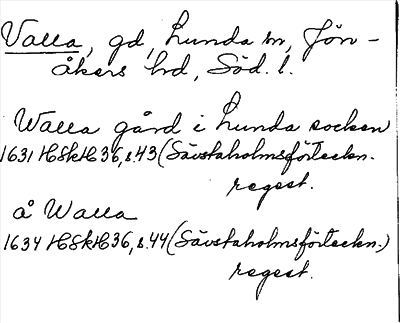 Valla, gd, Lunda sn, Jön-
åkers hd, Söd. l.
Walla gård i Lunda socken
1631 HSkH 36, s.43 (Sävstaholmsförteckn.
regest.
å Walla
1634 HSkH 36, s.44 (Sävstaholmsförteckn.)
regest.